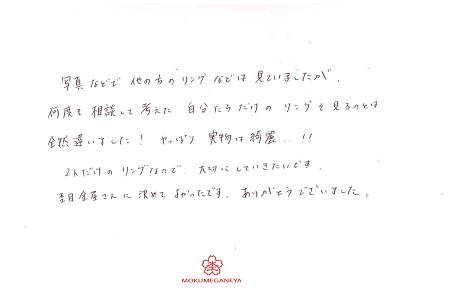 写真などで 他の方のリングなどは見ていましたが、
何度も相談して考えた 自分たちだけの リングを見るのとは
全然違いました！ やっぱり 実物は綺麗…！！
2人だけの リングなので、大切にしていきたいです。
杢目金屋さんに決めて よかったです。ありがとうございました。
MOKUMEGANEYA